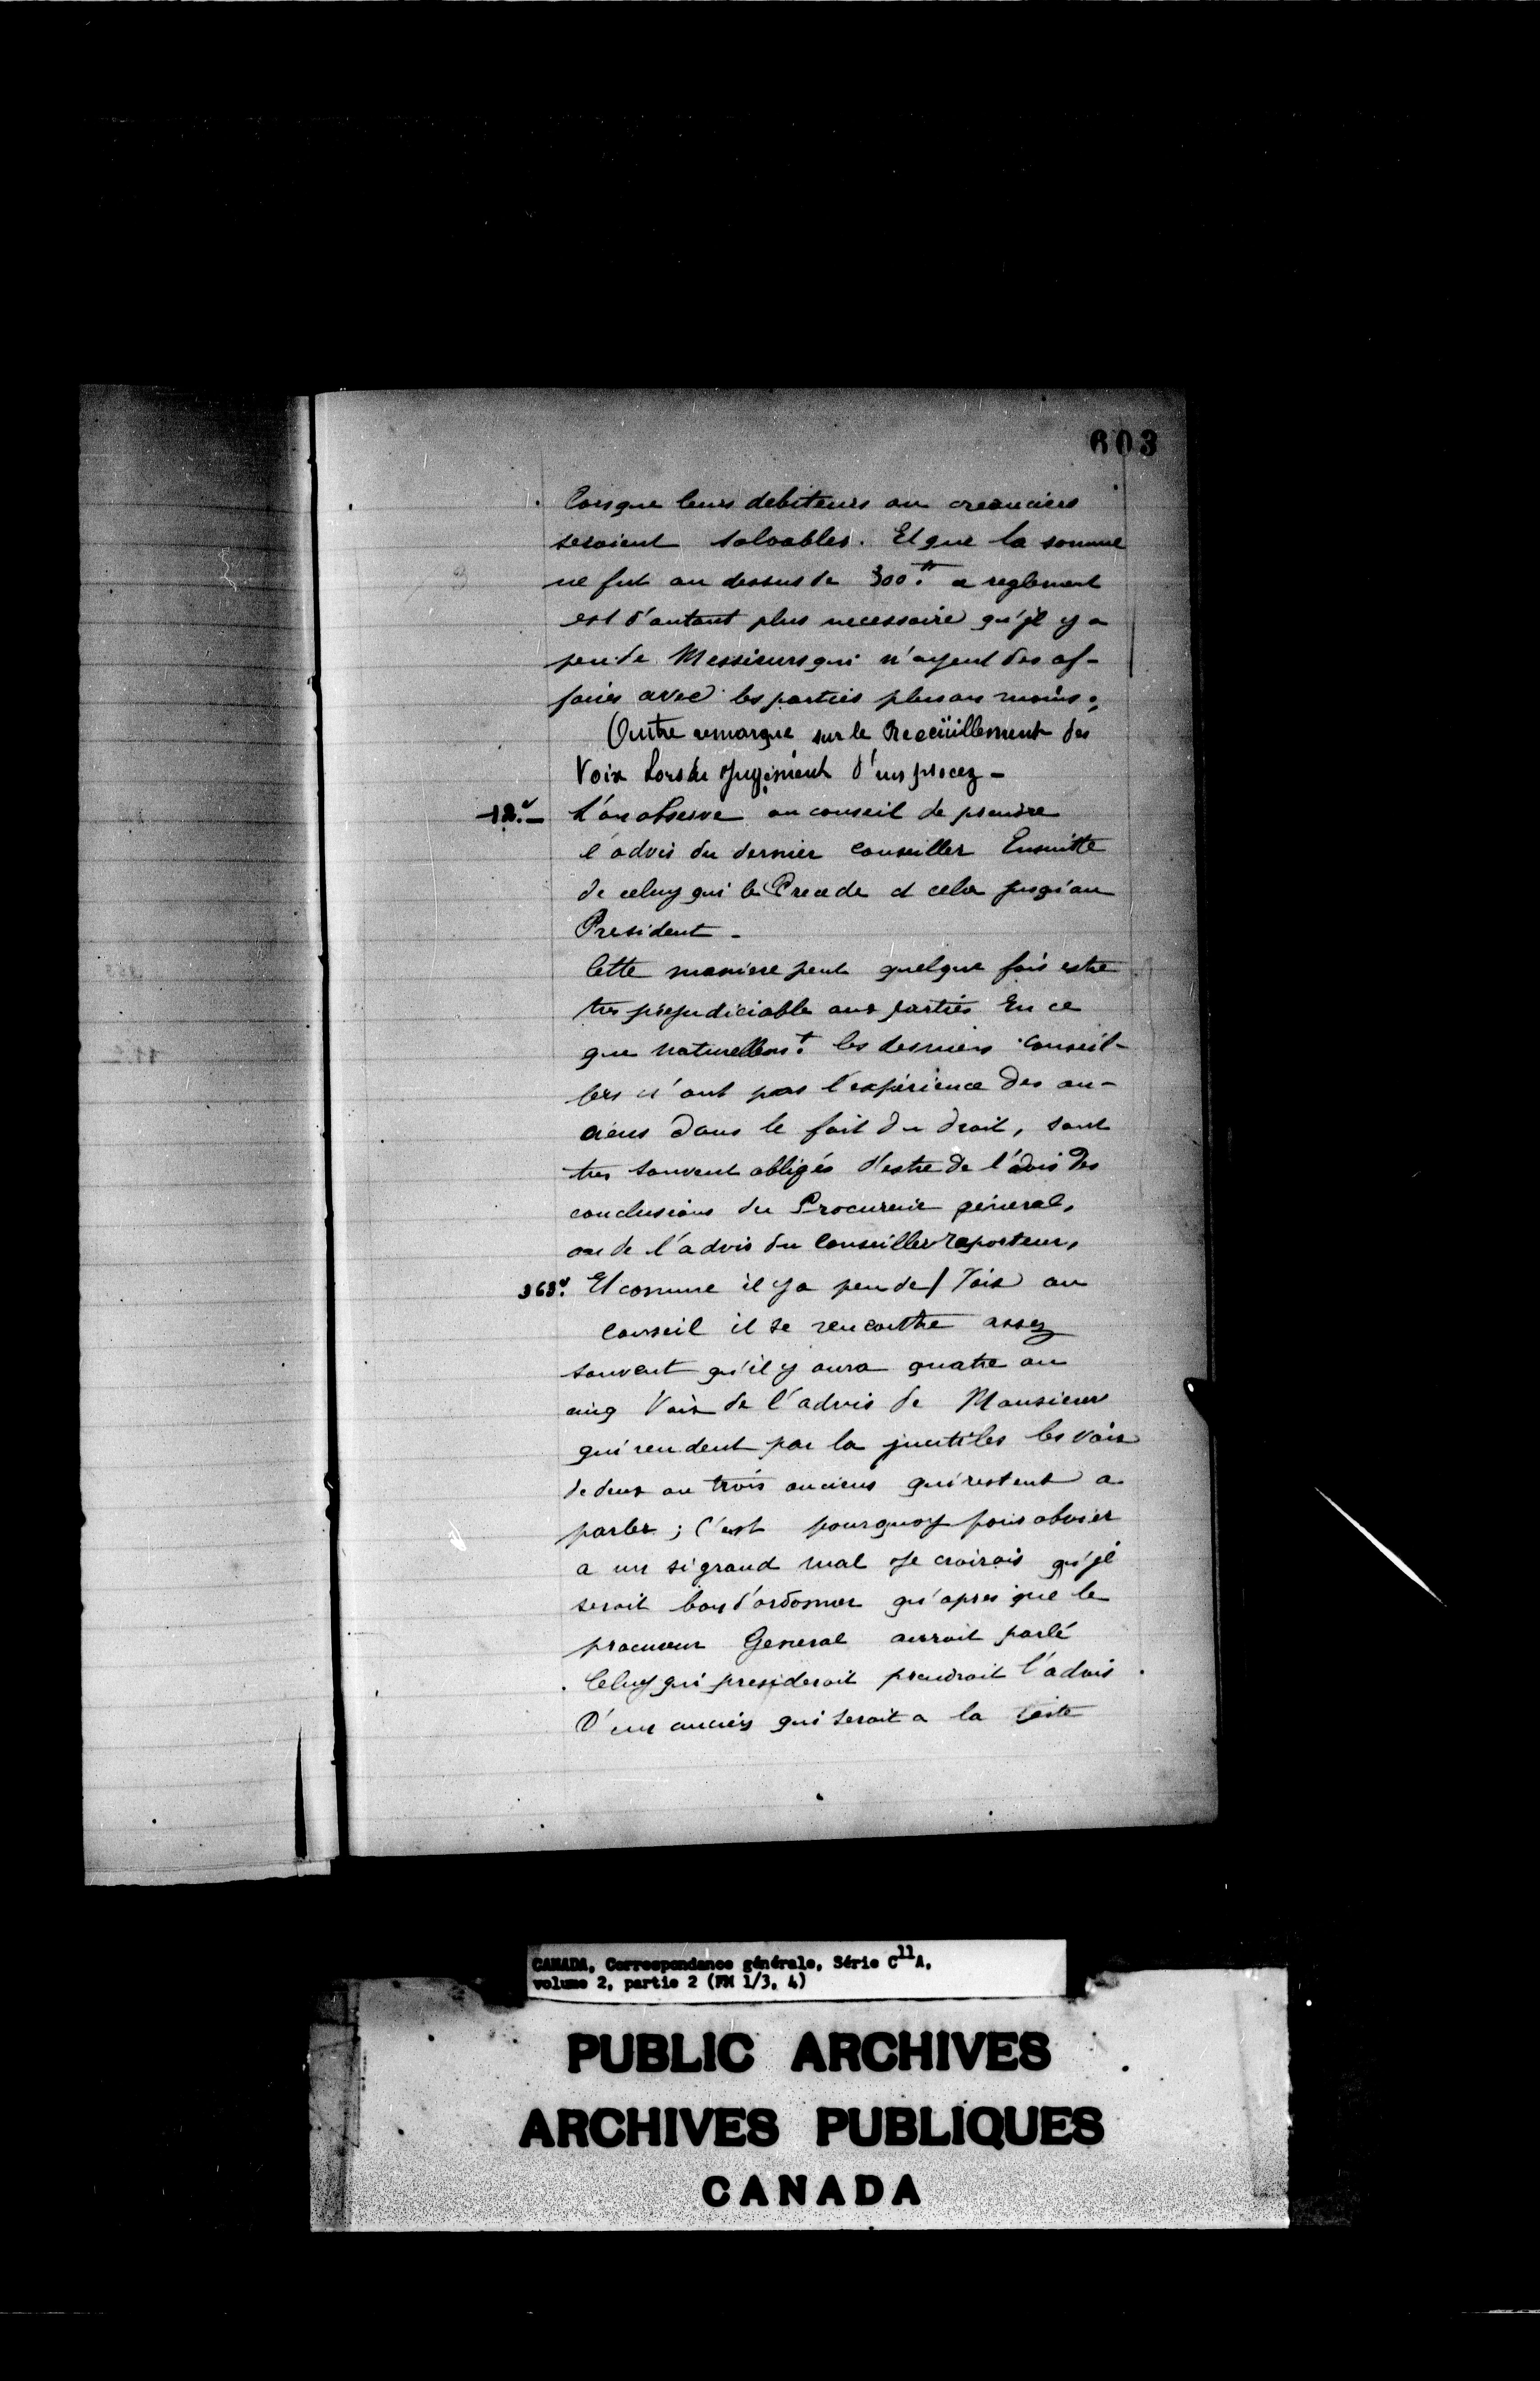 603
Lorsque leurs debiteurs ou creanciers
seroient solvables. Et que la somme
ne fut au dessus de 300.tt ce reglement
est d'autant plus necessaire qu'jl y a
peu de Messieurs qui n'ayent des af-
faires avec les parties plus ou moins;
Outre remarque sur le Recëuillement des
Voix Lors du Jugement d'un procez -
12.- L'on observe au conseil de prendre
l'advis du dernier conseiller Ensuitte
de celuy qui le Precede et cela jusqu'au
President -
Cette maniere peut quelque fois estre
tres prejudiciable aux parties En ce
que naturellem.t les derniers conseil-
lers n'ont pas l'expérience des an-
ciens dans le fait du droit, sont
tres souvent obligés d'estre de l'avis des
conclusions du Procureur general,
ou de l'advis du Conseiller raporteur,
363v. Et comme il y a peu de / Voix au
Conseil il se rencontre assez
souvent qu'il y aura quatre ou
cinq Voix de l'advis de Monsieur
qui rendent par la jnutiles les voix
de deux ou trois anciens qui restent a
parler; C'est pourquoy pour obvier
a un si grand mal Je croirois qu'jl
seroit bon d'ordonner qu'apres que le
procureur General auroit parlé
Celuy qui presideroit prendroit l'advis
D'un ancien qui seroit a la teste
CANADA, Correspondance générale, Série C11A,
volume 2, partie 2 (FM 1/3, 4)
PUBLIC ARCHIVES
ARCHIVES PUBLIQUES
CANADA